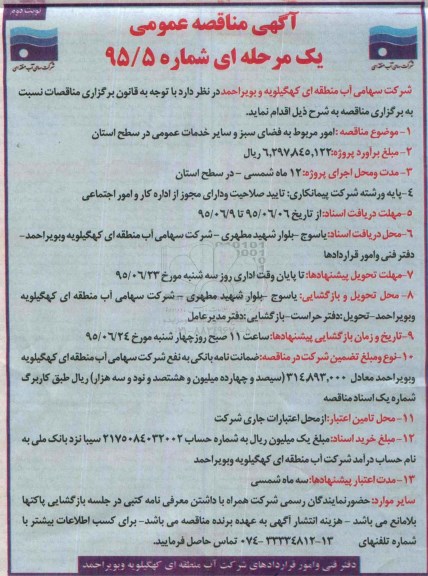 نوبت دوم
آگهی مناقصه عمومی
یک مرحله ای شماره ۹۵/۵
شرکت سهامی آب منطقه ای کهگیلویه و بویراحمد در نظر دارد با توجه به قانون برگزاری مناقصات نسبت
به برگزاری مناقصه به شرح ذیل اقدام نماید.
۱-موضوع مناقصه :امور مربوط به فضای سبز و سایر خدمات عمومی در سطح استان
۲-مبلغ برآورد پروژه: ۶,۲۹۷,۸۴۵,۱۲۲ ریال
۳-مدت ومحل اجرای پروژه: ۱۲ ماه شمسی - در سطح استان
۴-پایه ورشته شرکت پیمانکاری: تایید صلاحیت ودارای مجوز از اداره کار و امور اجتماعی
۵-مهلت دریافت اسناد: از تاریخ ۹۵/۰۶/۰۶ تا ۹۵/۰۶/۹
۶-محل دریافت اسناد: یاسوج -بلوار شهید مطهری - شرکت سهامی آب منطقه ای کهگیلویه وبویراحمد-
دفتر فنی وامور قراردادها
۷-مهلت تحویل پیشنهادها: تا پایان وقت اداری روز سه شنبه مورخ ۹۵/۰۶/۲۳
۸- محل تحویل و بازگشایی: یاسوج -بلوار شهید مطهری - شرکت سهامی آب منطقه ای کهگیلویه
وبویراحمد-تحویل:دفتر حراست-بازگشایی:دفتر مدیرعامل
۹-تاریخ و زمان بازگشایی پیشنهادها: ساعت ۱۱ صبح روز چهار شنبه مورخ ۹۵/۰۶/۲۴
۱۰-نوع ومبلغ تضمین شرکت در مناقصه: ضمانت نامه بانکی به نفع شرکت سهامی آب منطقه ای کهگیلویه
وبویراحمد معادل ۳۱۴,۸۹۳,۰۰۰ (سیصد و چهارده میلیون و هشتصد و نود و سه هزار) ریال طبق کاربرگ
شماره یک اسناد مناقصه
۱۱- محل تامین اعتبار: از محل اعتبارات جاری شرکت
۱۲- مبلغ خرید اسناد: مبلغ یک میلیون ریال به شماره حساب ۲۱۷۵۰۸۴۰۳۲۰۰۲ سیبا نزد بانک ملی به
نام حساب درآمد شرکت آب منطقه ای کهگیلویه وبویراحمد
۱۳-مدت اعتبار پیشنهادها: سه ماه شمسی
سایر موارد: حضور نمایندگان رسمی شرکت همراه با داشتن معرفی نامه کتبی در جلسه بازگشایی پاکتها
بلامانع می باشد - هزینه انتشار آگهی به عهده برنده مناقصه می باشد- برای کسب اطلاعات بیشتر با
شماره تلفنهای ۱۳-۳۳۳۳۴۸۱۲ -۰۷۴ تماس حاصل فرمایید.
دفتر فنی وامور قراردادهای شرکت آب منطقه ای کهگیلویه وبویراحمد